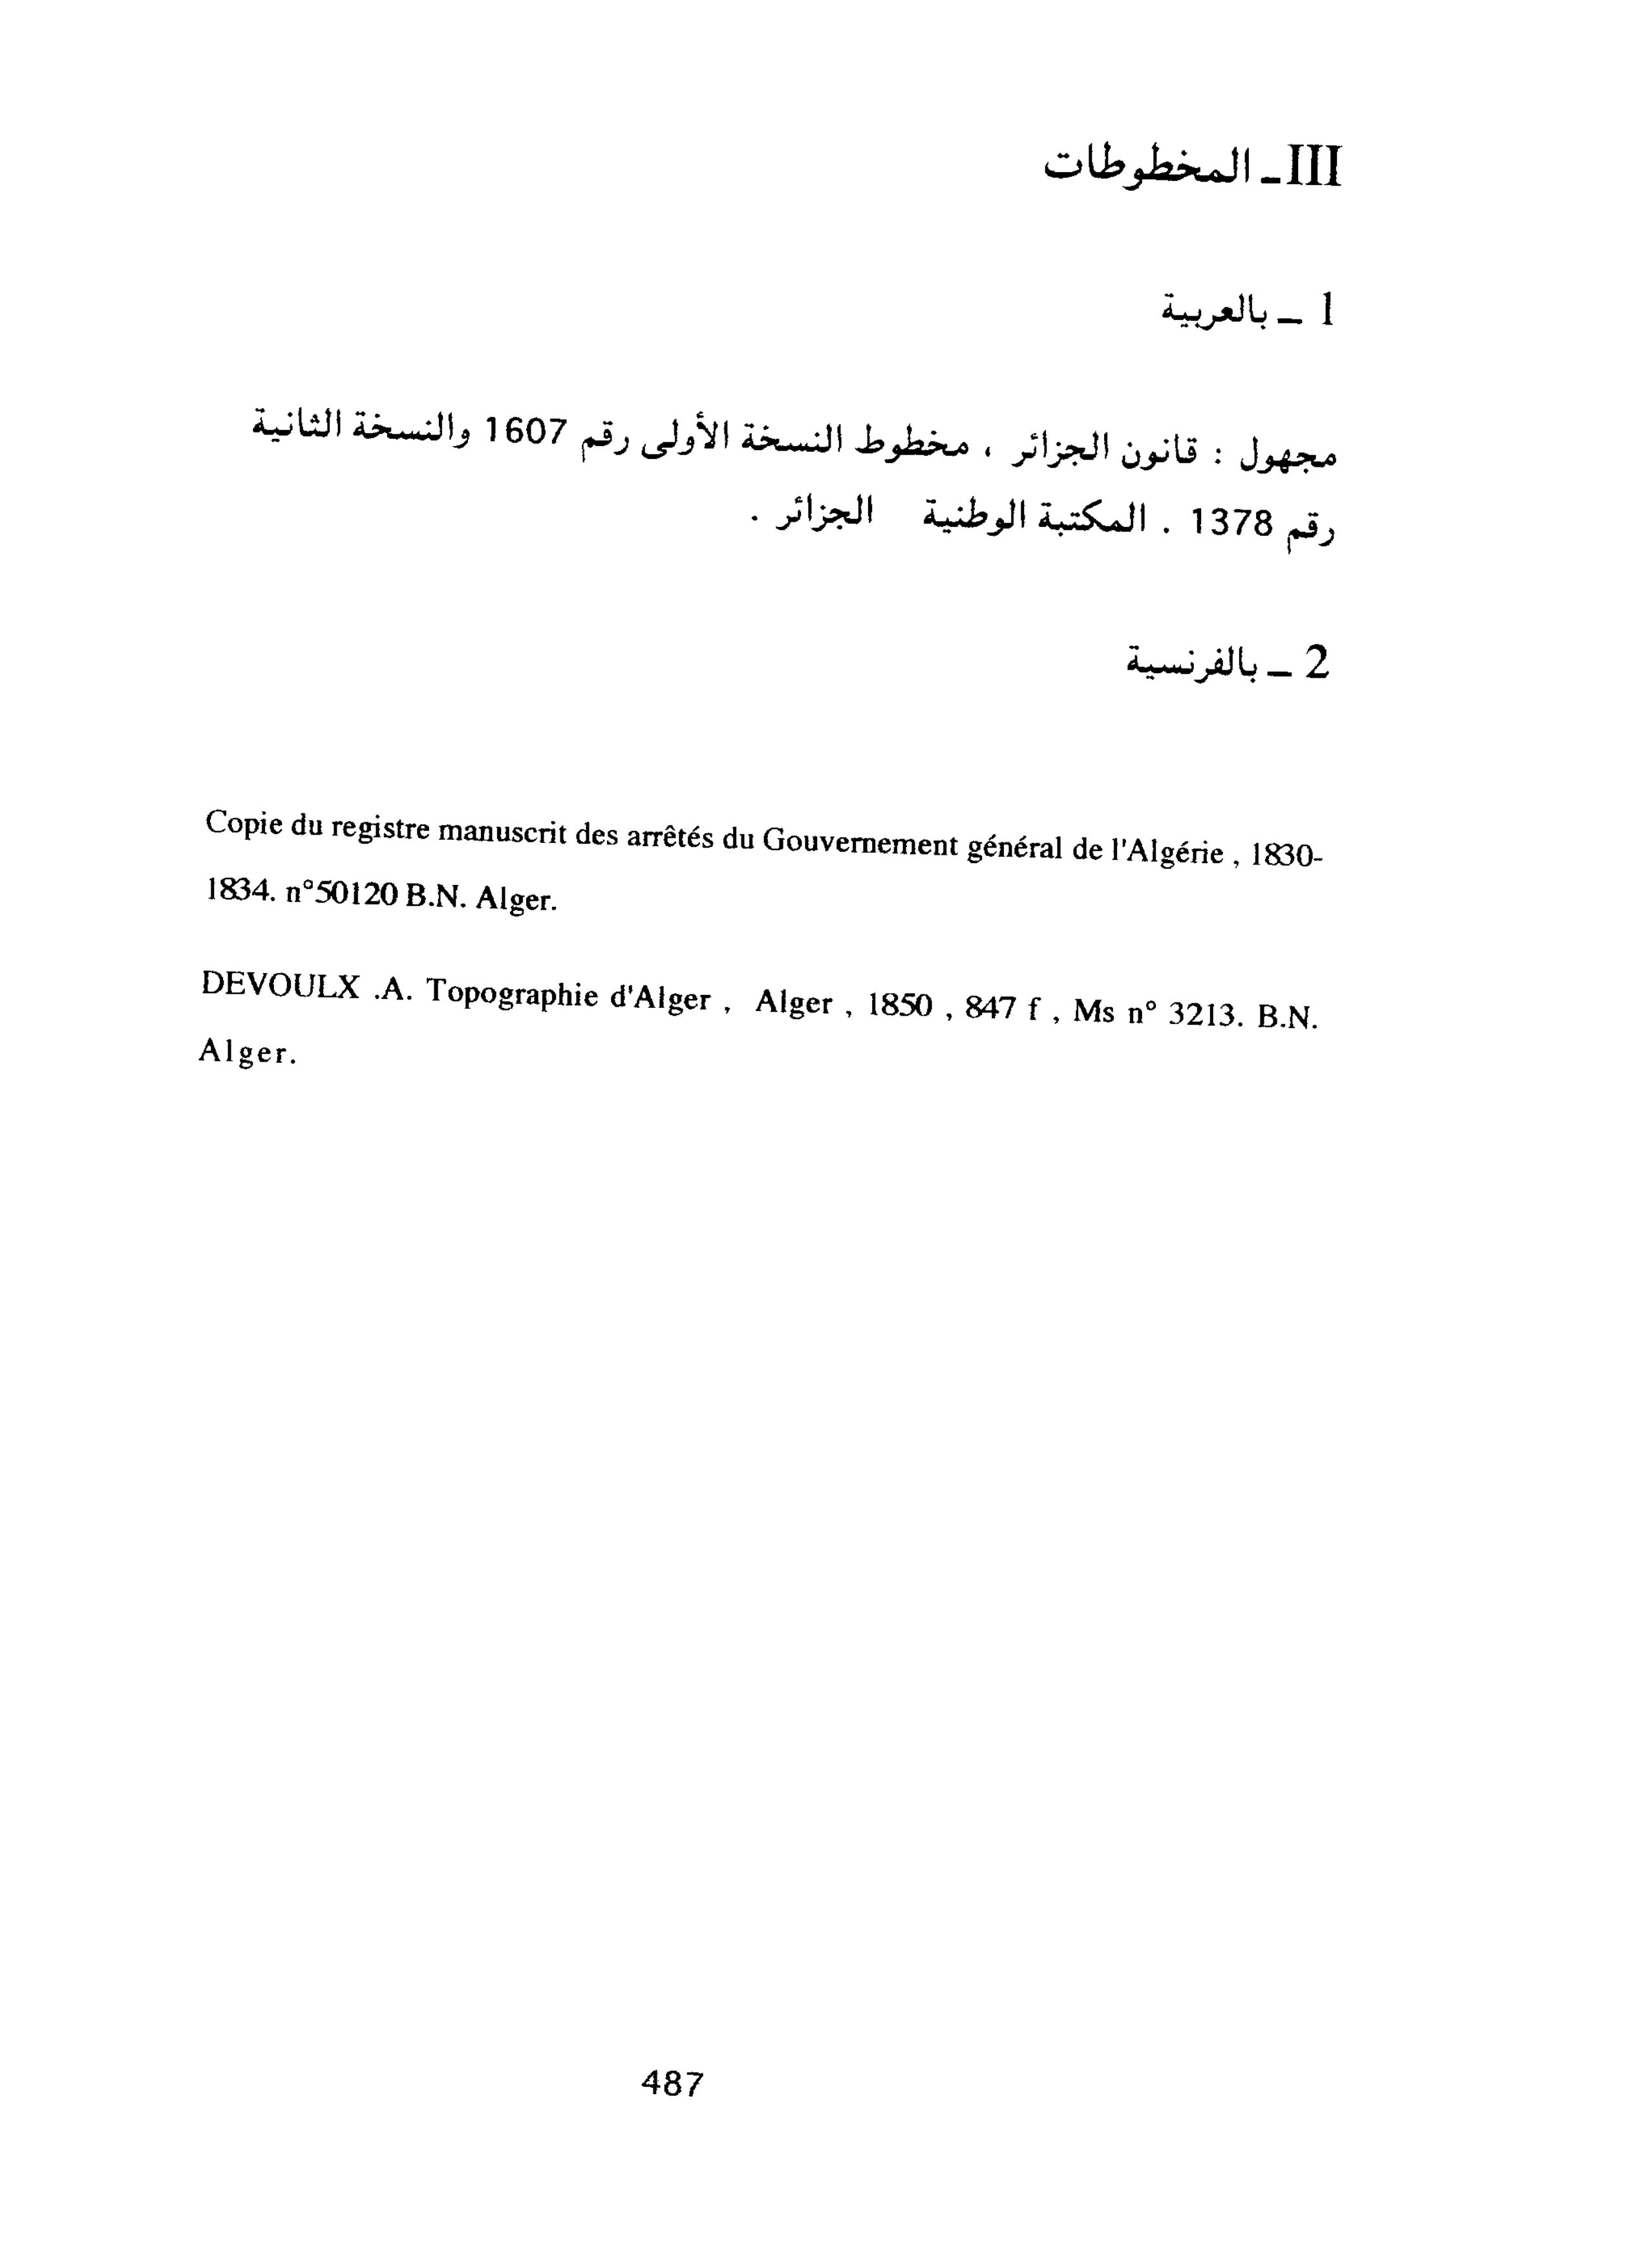 III ـ المخطوطات
1 ـ بالعربية
مجهول : قانون الجزائر ، مخطوط النسخة الأولى رقم 1607 والنسخة الثانية
رقم 1378 . المكتبة الوطنية الجزائر .
2 ـ بالفرنسية
Copie du registre manuscrit des arrêtés du Gouvernement général de l'Algérie , 1830-
1834. n°50120 B.N. Alger.
DEVOULX .A. Topographie d'Alger , Alger , 1850 , 847 f , Ms n° 3213. B.N.
Alger.
487